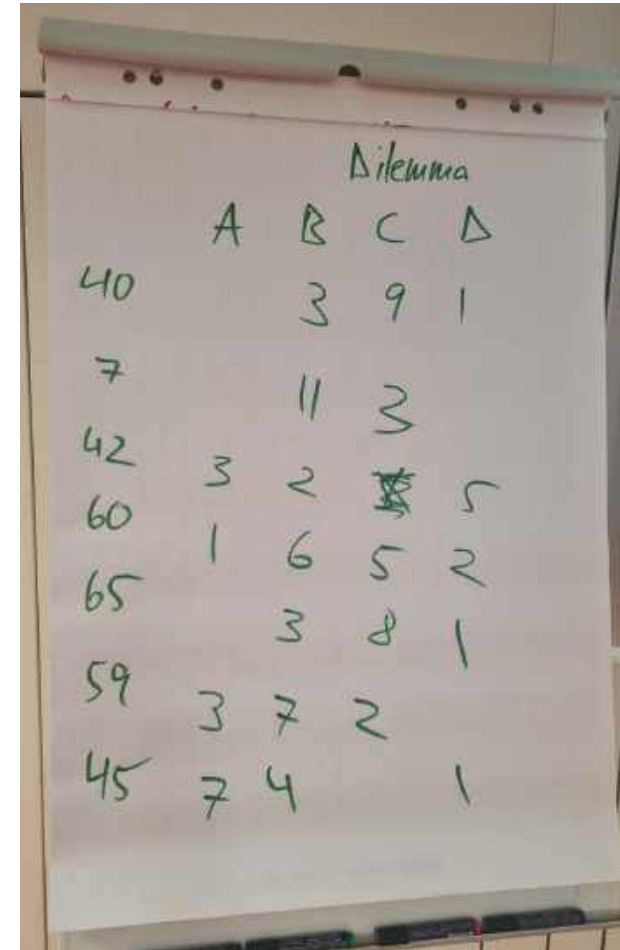 Dilemma
A B C D
40 3 9 1
7 11 3
42 3 2 5
60 1 6 5 2
65 3 8 1
59 3 7 2
45 7 4 1